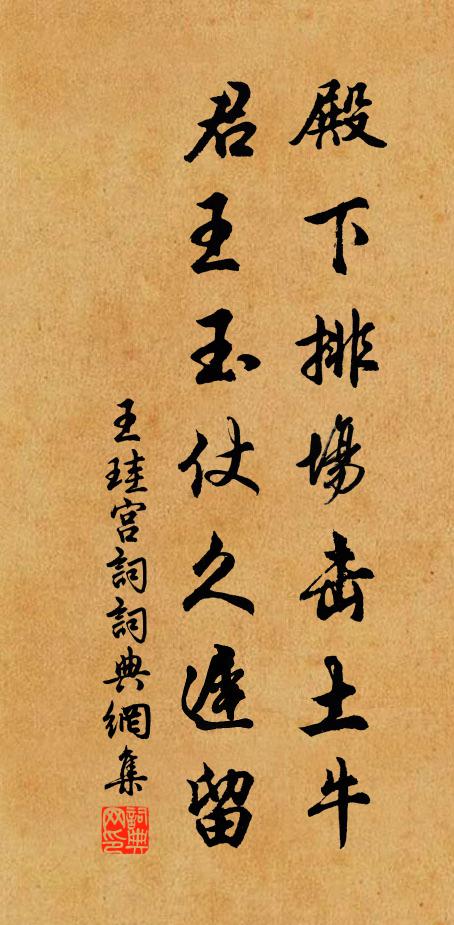 殿下排場击土牛
君王玉仗久遲留
王珪宮詞詞典網集
詞典网印